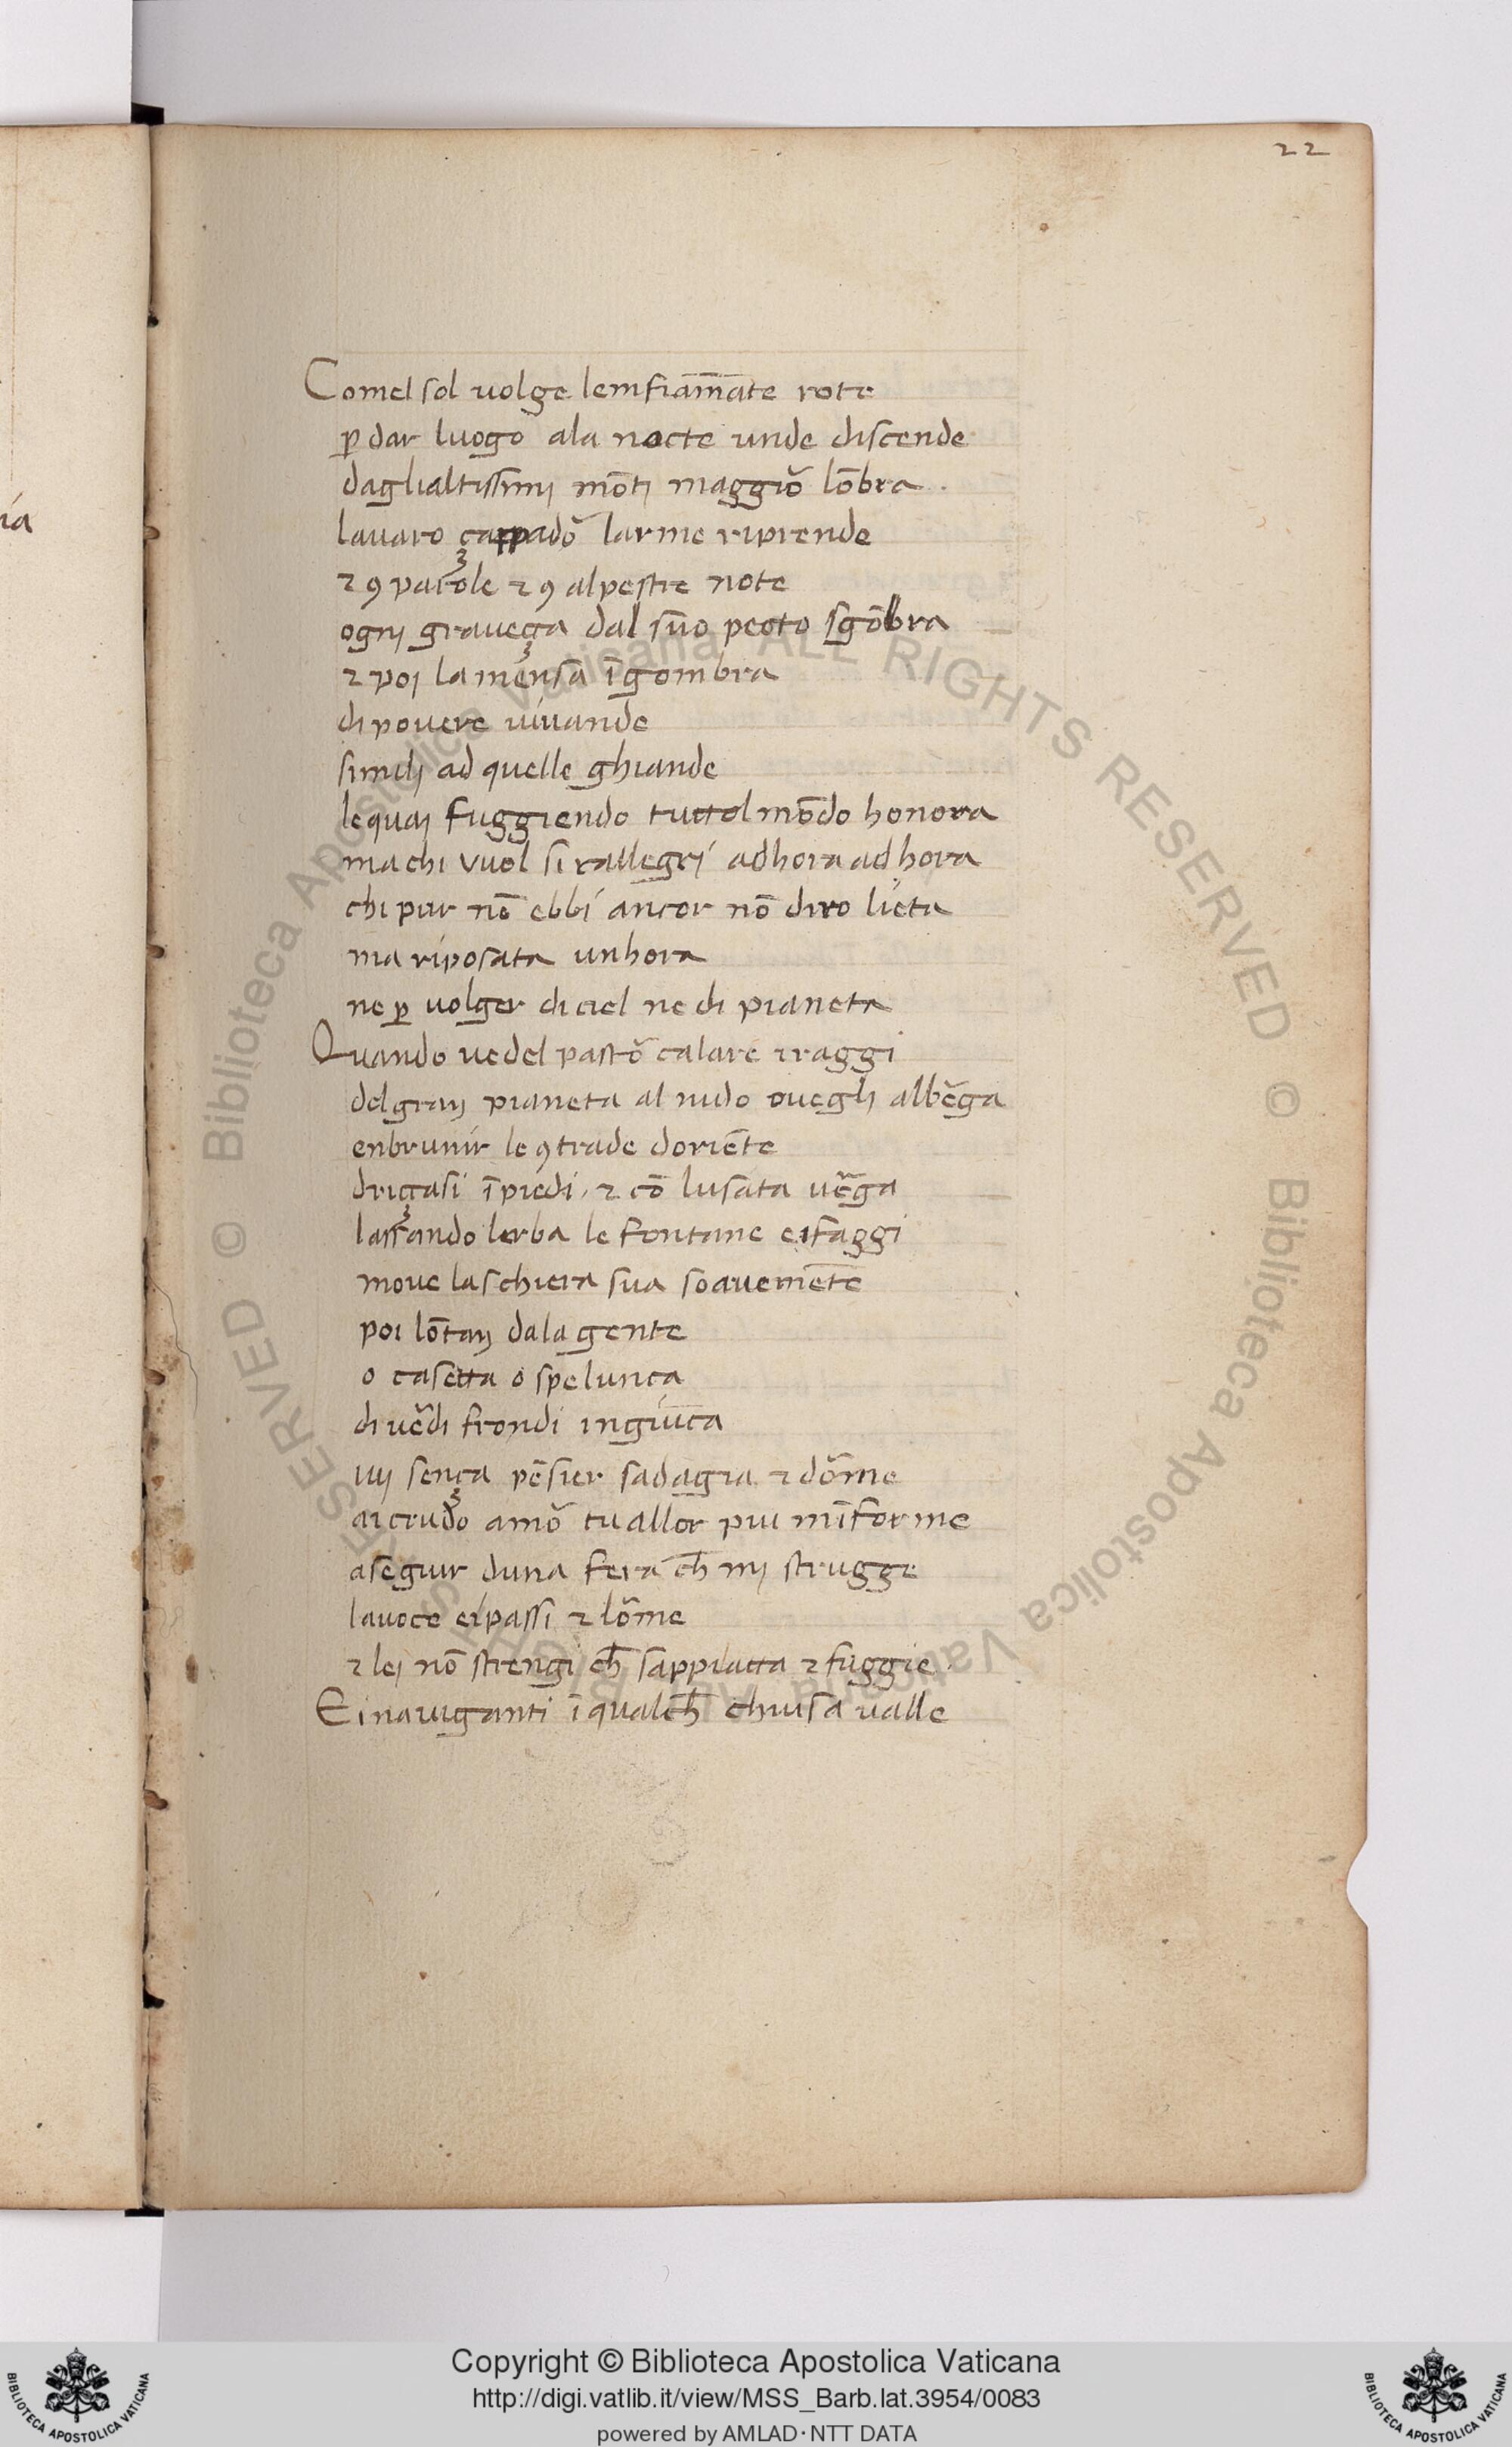 22
Comel sol uolge lemfiam̄ate rote
ꝑ dar luogo ala nocte unde discende
daglialtissimj mōtj maggiō lōbra.
lauaro çappadō larme riprende
⁊ ꝯ parole ⁊ ꝯ alpestre note
ognj graueça dal suo pecto sgōbra
⁊ poj la mensa īgombra
di pouere uiuande
similj ad quelle ghiande
lequaj fuggiendo tuttol mōdo honora
ma chi vuol si rallegri adhora ad hora
chi pur nō ebbi ancor nō diro lieta
ma riposata unhora
ne ꝑ uolger di ciel ne di pianeta
Quando uedel pastō calare i raggi
del gran pianeta al nido ouegli albēga
enbrunir le ꝯtrade doriēte
driçasi ī piedi, ⁊ cō lusata uēga
lassando lerba le fontane ei faggi
moue la schiera sua soauemēte
poi lōtan dala gente
o casetta o spelunca
di uēdi frondi ingiūca
iuj sença pēsier sadagia ⁊ dōme
ai crudo amō tu allor piu mīforme
a seguir duna fera ch̄ mj strugge
la uoce ei passi ⁊ lōme
⁊ lej nō strengi ch̄ sappiatta ⁊ fuggie.
Ei nauiganti ī qualch̄ chiusa ualle
ia
© Biblioteca Apostolica Vaticana ALL RIGHTS RESERVED
© Biblioteca Apostolica Vaticana ALL RIGHTS RESERVED
Copyright © Biblioteca Apostolica Vaticana
http://digi.vatlib.it/view/MSS_Barb.lat.3954/0083
powered by AMLAD·NTT DATA
BIBLIOTECA APOSTOLICA VATICANA
BIBLIOTECA APOSTOLICA VATICANA